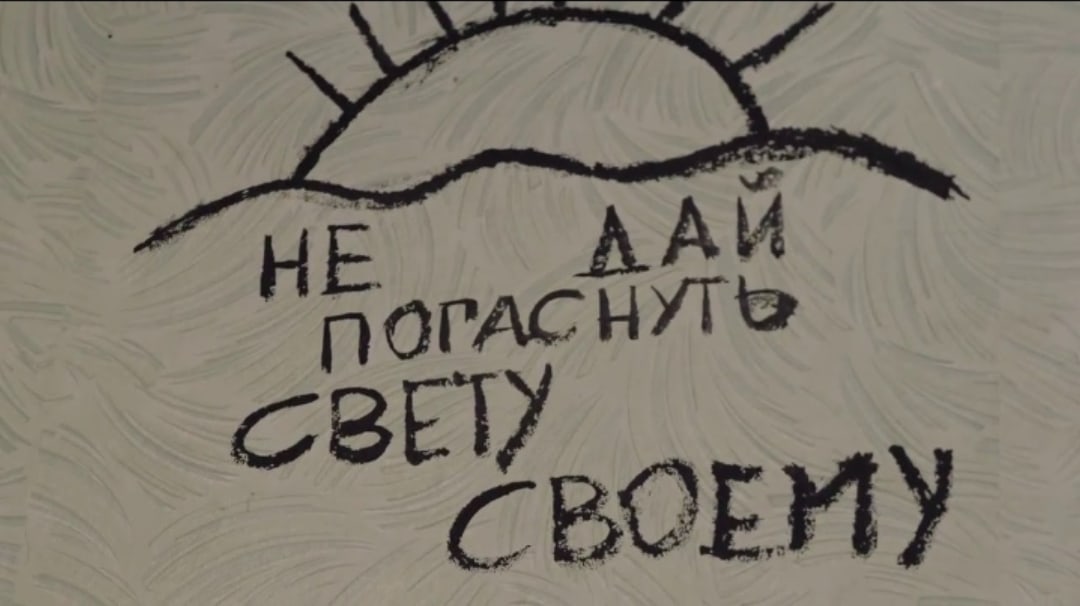 НЕ ДАЙ
ПОГАСНУТЬ
СВЕТУ
СВОЕМУ